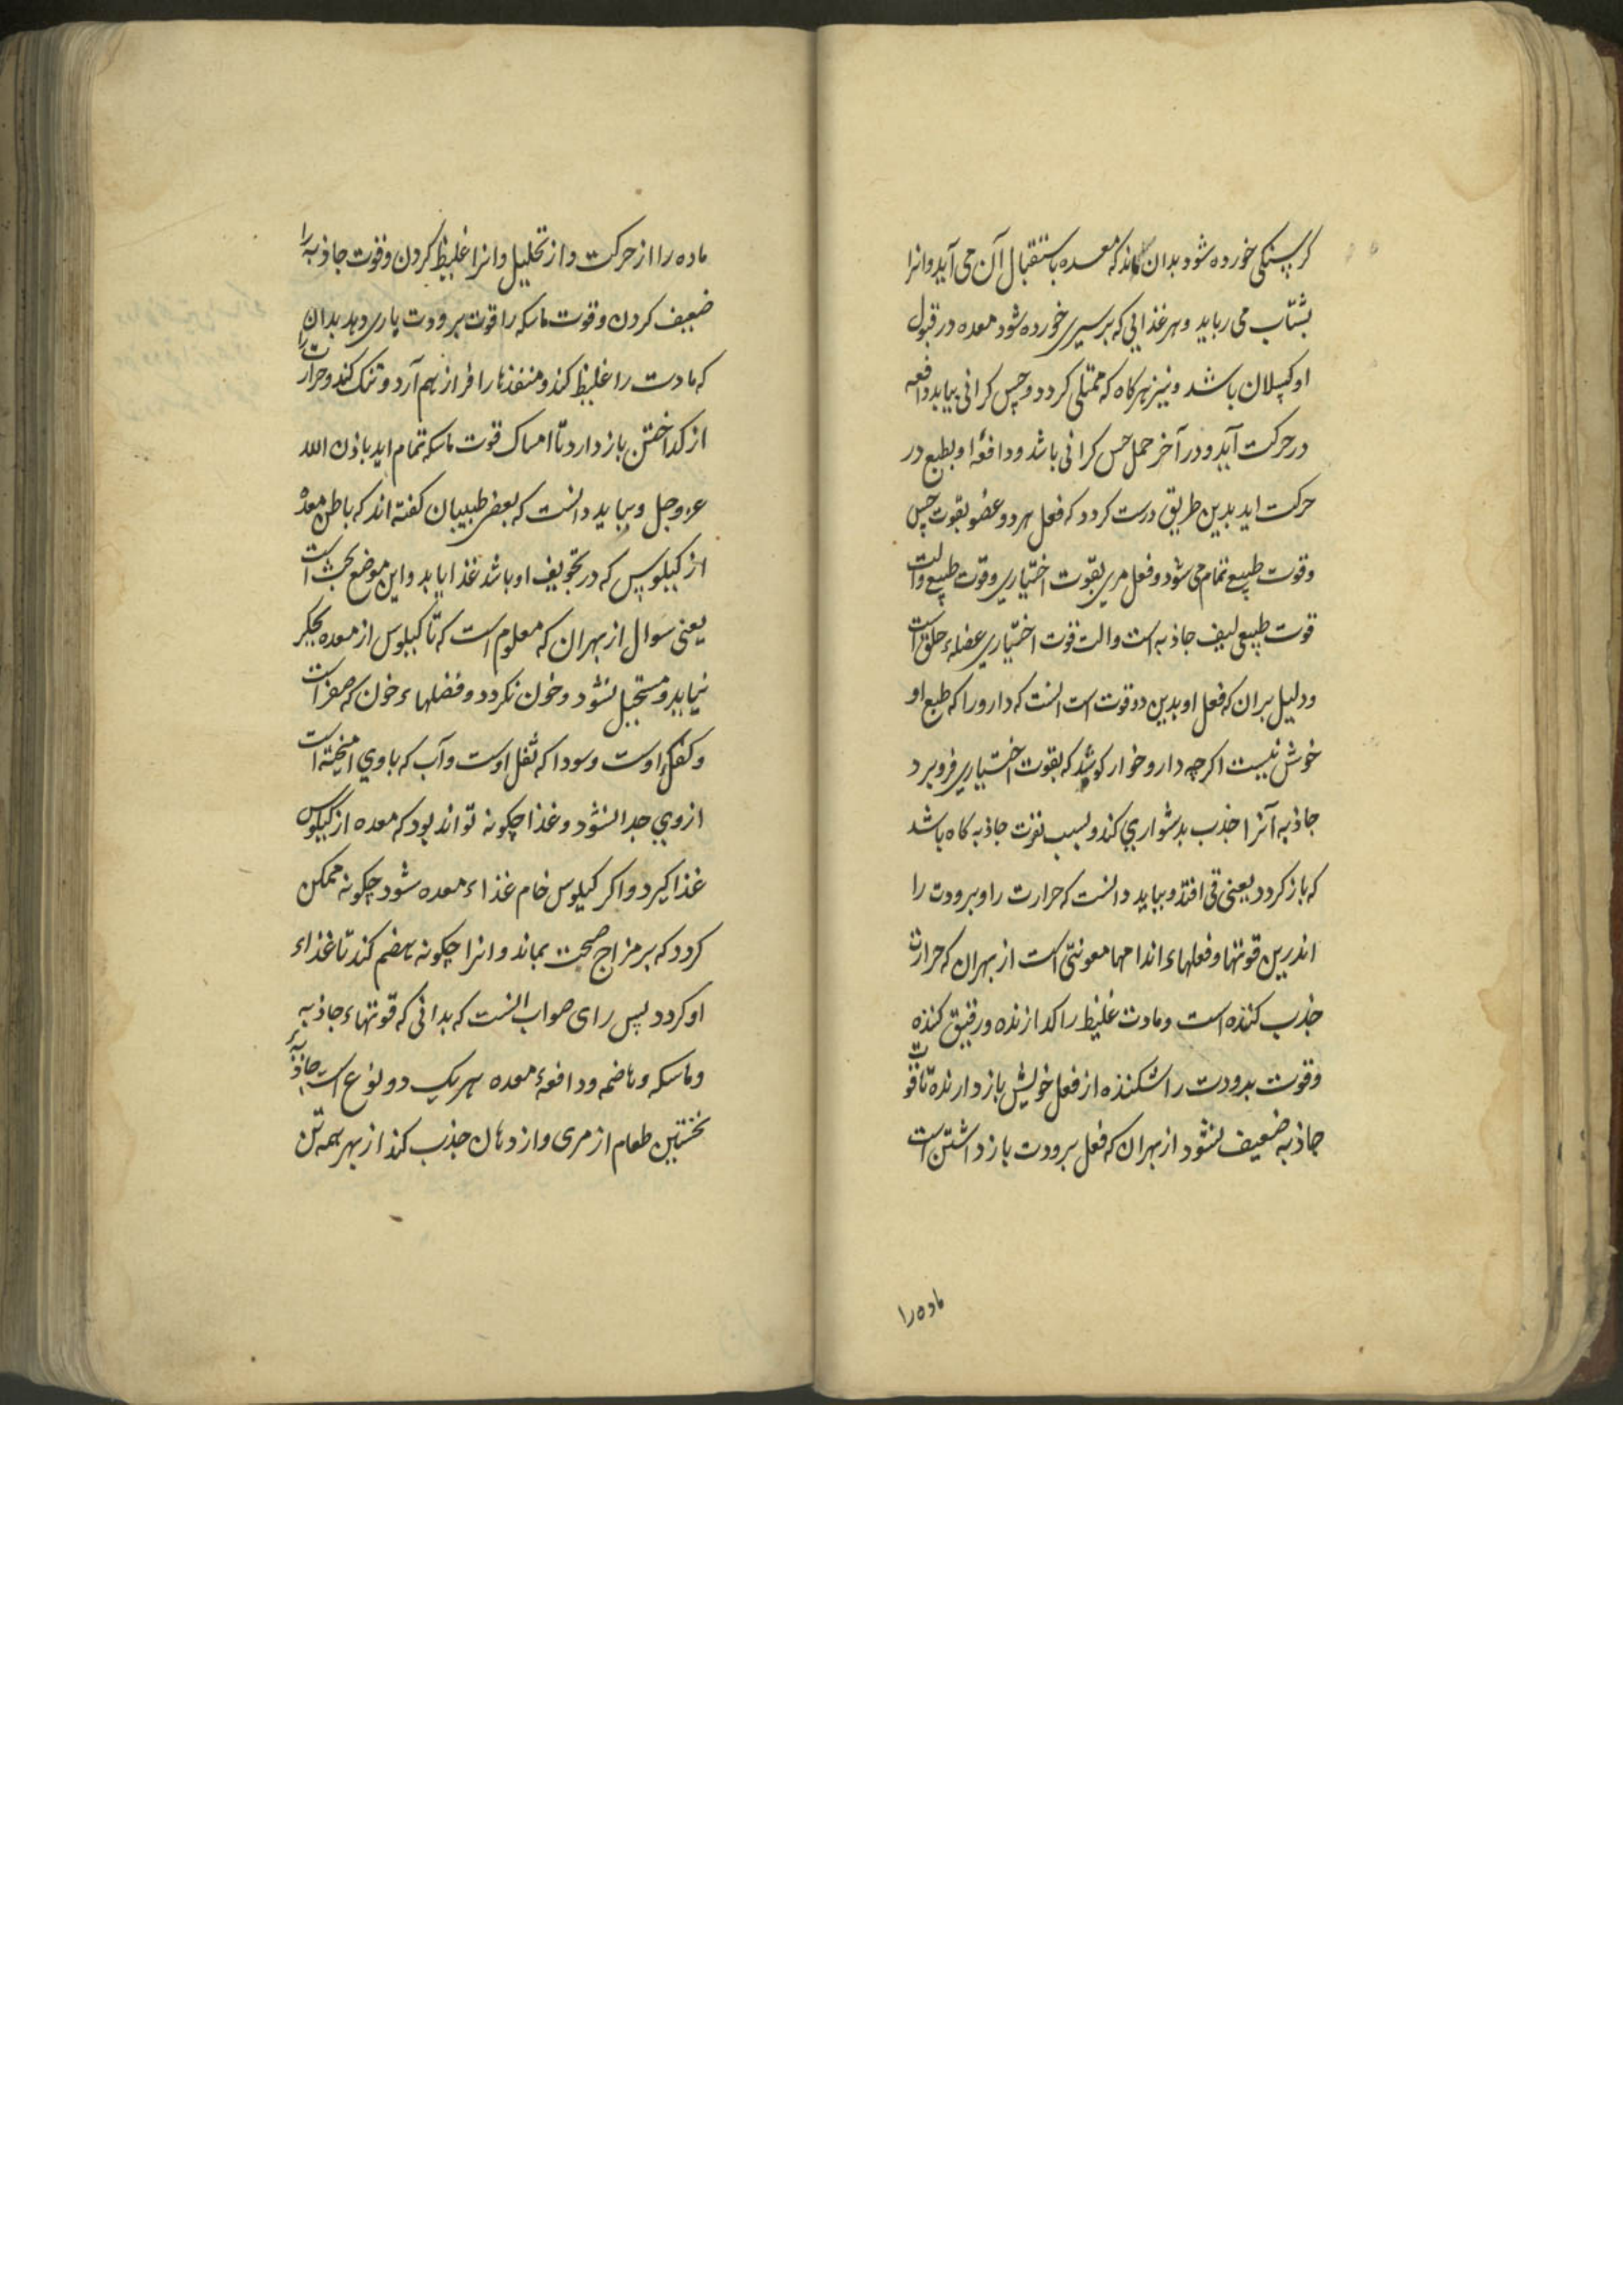 کرسنکی خورده شود بدان ماند که معده باستقبال آن می آید و انرا
بشتاب می رباید و هر غذایی که بر سیری خورده شود معده در قبول
او کسلان باشد و نیز هرکاه که ممتلی کردد و حس کرانی بیابد دافعه
در حرکت آید و در آخر حمل حس کرانی باشد و دافعهٔ او بطبع در
حرکت اید بدین طریق درست کردد که فعل هر دو عضو بقوت حس
و قوت طبیعی تمام می شود و فعل مری بقوت اختیاری و قوت طبیعی و الت
قوت طبیعی لیف جاذبه است و الت قوت اختیاری عضلهٔ حلق است
و دلیل بران که فعل او بدین دو قوت است انست که دارو را که طبع او
خوش نیست اکرچه دارو خوار کوشد که بقوت اختیاری فرو برد
جاذبه آنرا جذب بدشواری کند و بسبب نفرت جاذبه کاه باشد
که باز کردد یعنی قی افتد و بباید دانست که حرارت را و برودت را
اندرین قوتها و فعلهاء اندامها معونتی است از بهر ان که حرارت
جذب کننده است و مادت غلیظ را کدازنده و رقیق کننده
و قوت برودت را شکننده از فعل خویش باز دارنده تا قوت
جاذبه ضعیف نشود از بهر ان که فعل برودت باز داشتن است
ماده را
ماده را از حرکت و از تحلیل و انرا غلیظ کردن و قوت جاذبه را
ضعیف کردن و قوت ماسکه را قوت برودت یاری دهد بدان
که مادت را غلیظ کند و منفذها را فراز هم آرد و تنک کند و حرارت را
از کداختن باز دارد تا امساک قوت ماسکه تمام اید باذن الله
عز و جل و بباید دانست که بعضی طبیبان کفته اند که باطن معده
از کیلوس که در تجویف او باشد غذا یابد و این موضع بحث است
یعنی سوال از بهر ان که معلوم است که تا کیلوس از معده بجکر
نیاید و مستحیل نشود و خون نکردد و فضلهاء خون که صفرا است
و کفک اوست و سودا که ثفل اوست و آب که با وی امیخته است
از وی جدا نشود و غذا چکونه تواند بود که معده از کیلوس
غذا کیرد و اکر کیلوس خام غذاء معده شود چکونه ممکن
کردد که بر مزاج صحت بماند و انرا چکونه هضم کند تا غذاء
او کردد پس رای صواب انست که بدانی که قوتهاء جاذبه
و ماسکه و هاضمه و دافعهٔ معده هر یک دو نوع است جاذبهٔ
نخستین طعام از مری و از دهان جذب کند از بهر همه تن